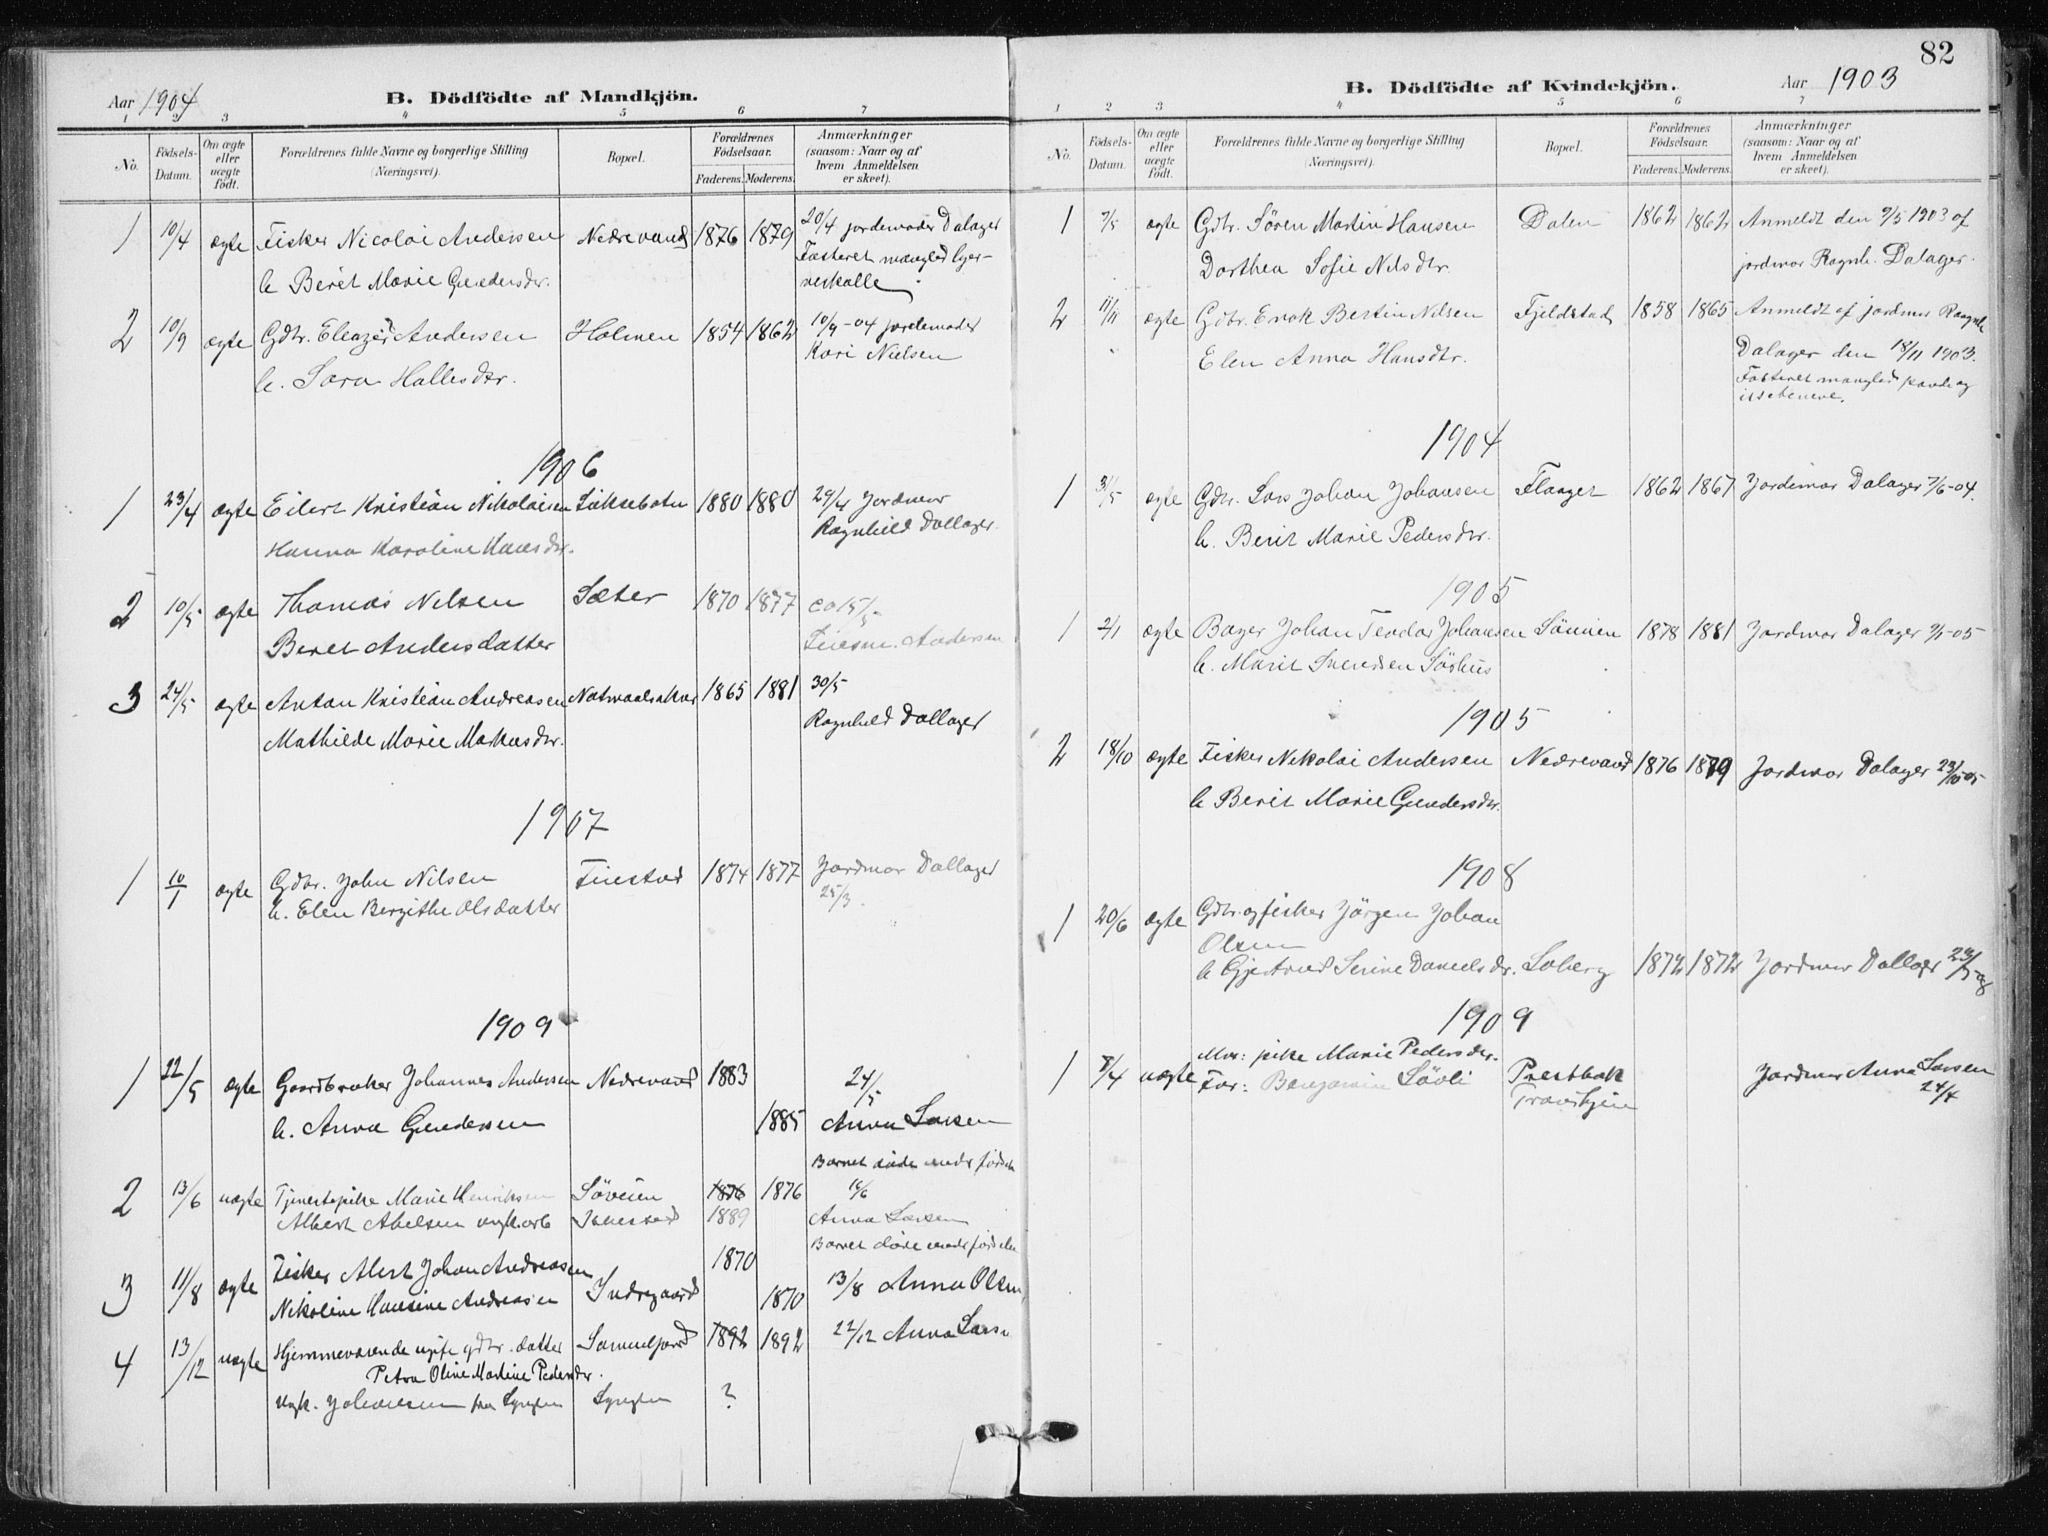 Aar 1904
B. Dödfödte af Mandkjön.
1 2 3 4 5 6 7
No.
Födsels-
Datum.
Om ægte
eller
uægte
født.
Forældrenes fulde Navne og borgerlige Stilling
(Næringsvei).
Bopæl.
Forældrenes
Födselsaar.
Faderens. Moderens.
Anmærkninger
(saasom: Naar og af
hvem Anmeldelsen
er skeet).
1 10/4 ægte Fisker Nicolai Andersen Nedrevand 1876 1879 20/4 jordemoder Dalager
h Berit Marie Gundersdtr. Fosteret mangled hjer-
neskalle.
2 10/9 ægte Gdbr. Eleazer Andersen Holmen 1854 1862 10/9-04 jordemoder
h. Sara Hallesdtr. Kari Nielsen
1906
1 23/4 ægte Eilert Kristian Nikolaisen 1880 1880 29/4 Jordmor
Hanna Karoline Hansdtr. Ragnhild Dallager.
2 10/5 ægte Thomas Nilsen Sæter 1870 1877 ca 15/5
Beret Andersdatter Andersen
3 24/5 ægte Anton Kristian Andreasen 1865 1881 30/5
Mathilde Marie Markusdtr. Ragnhild Dallager
1907
1 10/1 ægte Gdbr. John Nilsen 1874 1877 Jordmor Dallager
h. Elen Bergithe Olsdatter 25/3.
1909
1 22/5 ægte Gaardbruker Johannes Andersen Nedrevand 1883 24/5
h. Anna Gundersen 1885 Anna Larsen
Barnet döde under födsele
2 13/6 uægte Tjenestepike Marie Henriksen Söveien 1876 1876 16/6
Albert Abelsen ungk. arb 1889 Anna Larsen
Barnet döde under födselen
3 11/8 ægte Fisker Alert Johan Andreasen 1870
Nikoline Hansine Andreasen Indregaard 1870 13/8 Anna Olsen
4 13/12 uægte Hjemmeværende ugift gdbr. datter 1892 1892 22/12 Anna Lars
Petra Oline Martine Pedersdtr.
ungk. Johansen fra Lyngen Lyngen ?
82
B. Dödfödte af Kvindekjön.
Aar 1903
1 2 3 4 5 6 7
No.
Födsels-
Datum.
Om ægte
eller
uægte
födt.
Forældrenes fulde Navne og borgerlige Stilling
(Næringsvei).
Bopæl.
Forældrenes
Födselsaar.
Faderens. Moderens.
Anmærkninger
(saasom: Naar og af
hvem Anmeldelsen
er skeet).
1 7/5 ægte Gdbr. Sören Martin Hansen Dalen 1862 1862 Anmeldt den 9/5 1903 af
Dorthea Sofie Nilsdtr. jordmor Ragnh. Dalager.
2 11/11 ægte Gdbr. Enok Bertin Nilsen Fjeldstad 1858 1865 Anmeldt af jordmor Ragnh
Elen Anna Hansdtr. Dalager den 18/11 1903.
Fosteret mangled pande og
issebenene.
1904
1 31/5 ægte Gdbr. Lars Johan Johansen 1862 1867 Jordemor Dalager 7/6-04.
h. Berit Marie Pedersdtr.
1905
1 2/1 ægte Bager Johan Teodor Johansen 1878 1881 Jordmor Dalager 9/1-05
h. Marit Svendsen Sörhus
1905
2 18/10 ægte Fisker Nikolai Andersen Nedrevand 1876 1879 Jordmor Dalager 23/10-05
h Berit Marie Gundersdtr.
1908
1 20/6 ægte Gdbr. og fisker Jörgen Johan
Olsen
h Gjertrud Serine Danielsdr. Soberg 1872 1872 Jordmor Dallager
1909
Mor: pike Marie Pedersdtr.
1 7/4 uægte Far: Benjamin Lövli Prestbak Jordmor Anna Larsen
24/4